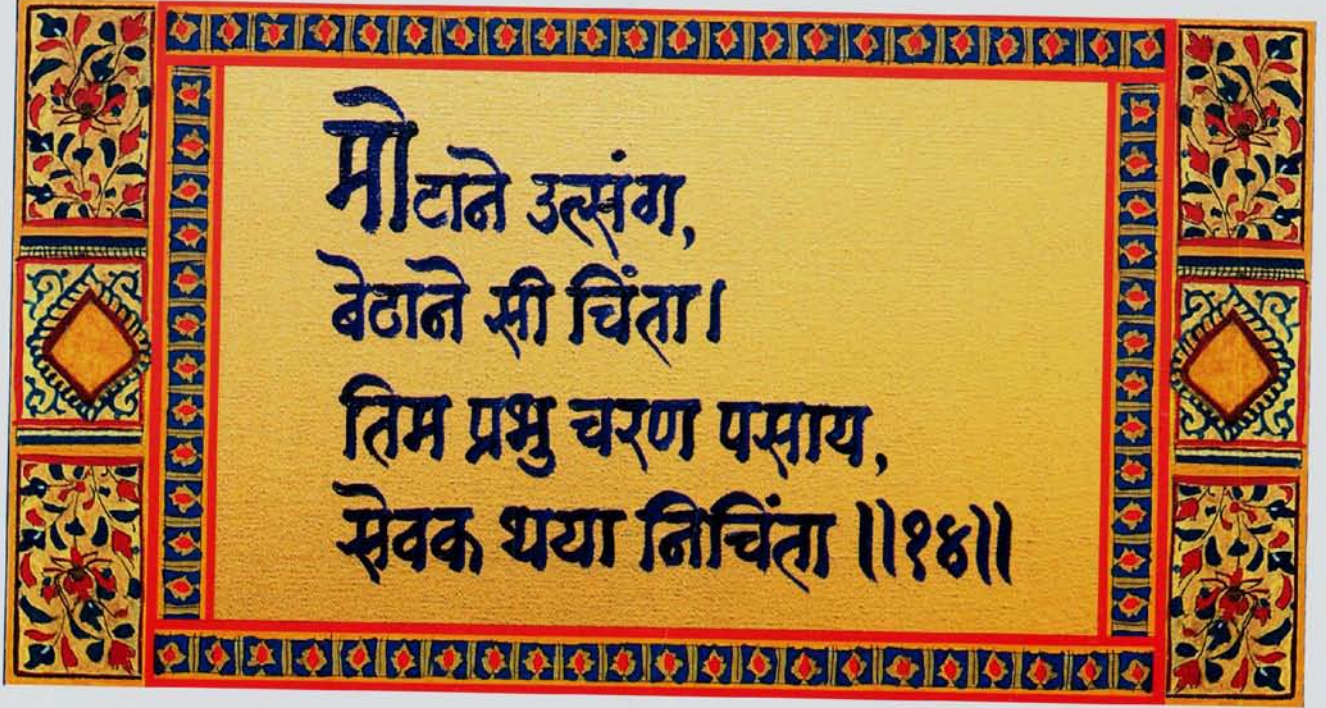 मोटाने उत्संग,
बेठाने सी चिंता।
तिम प्रभु चरण पसाय,
सेवक थया निचिंता ॥१४॥